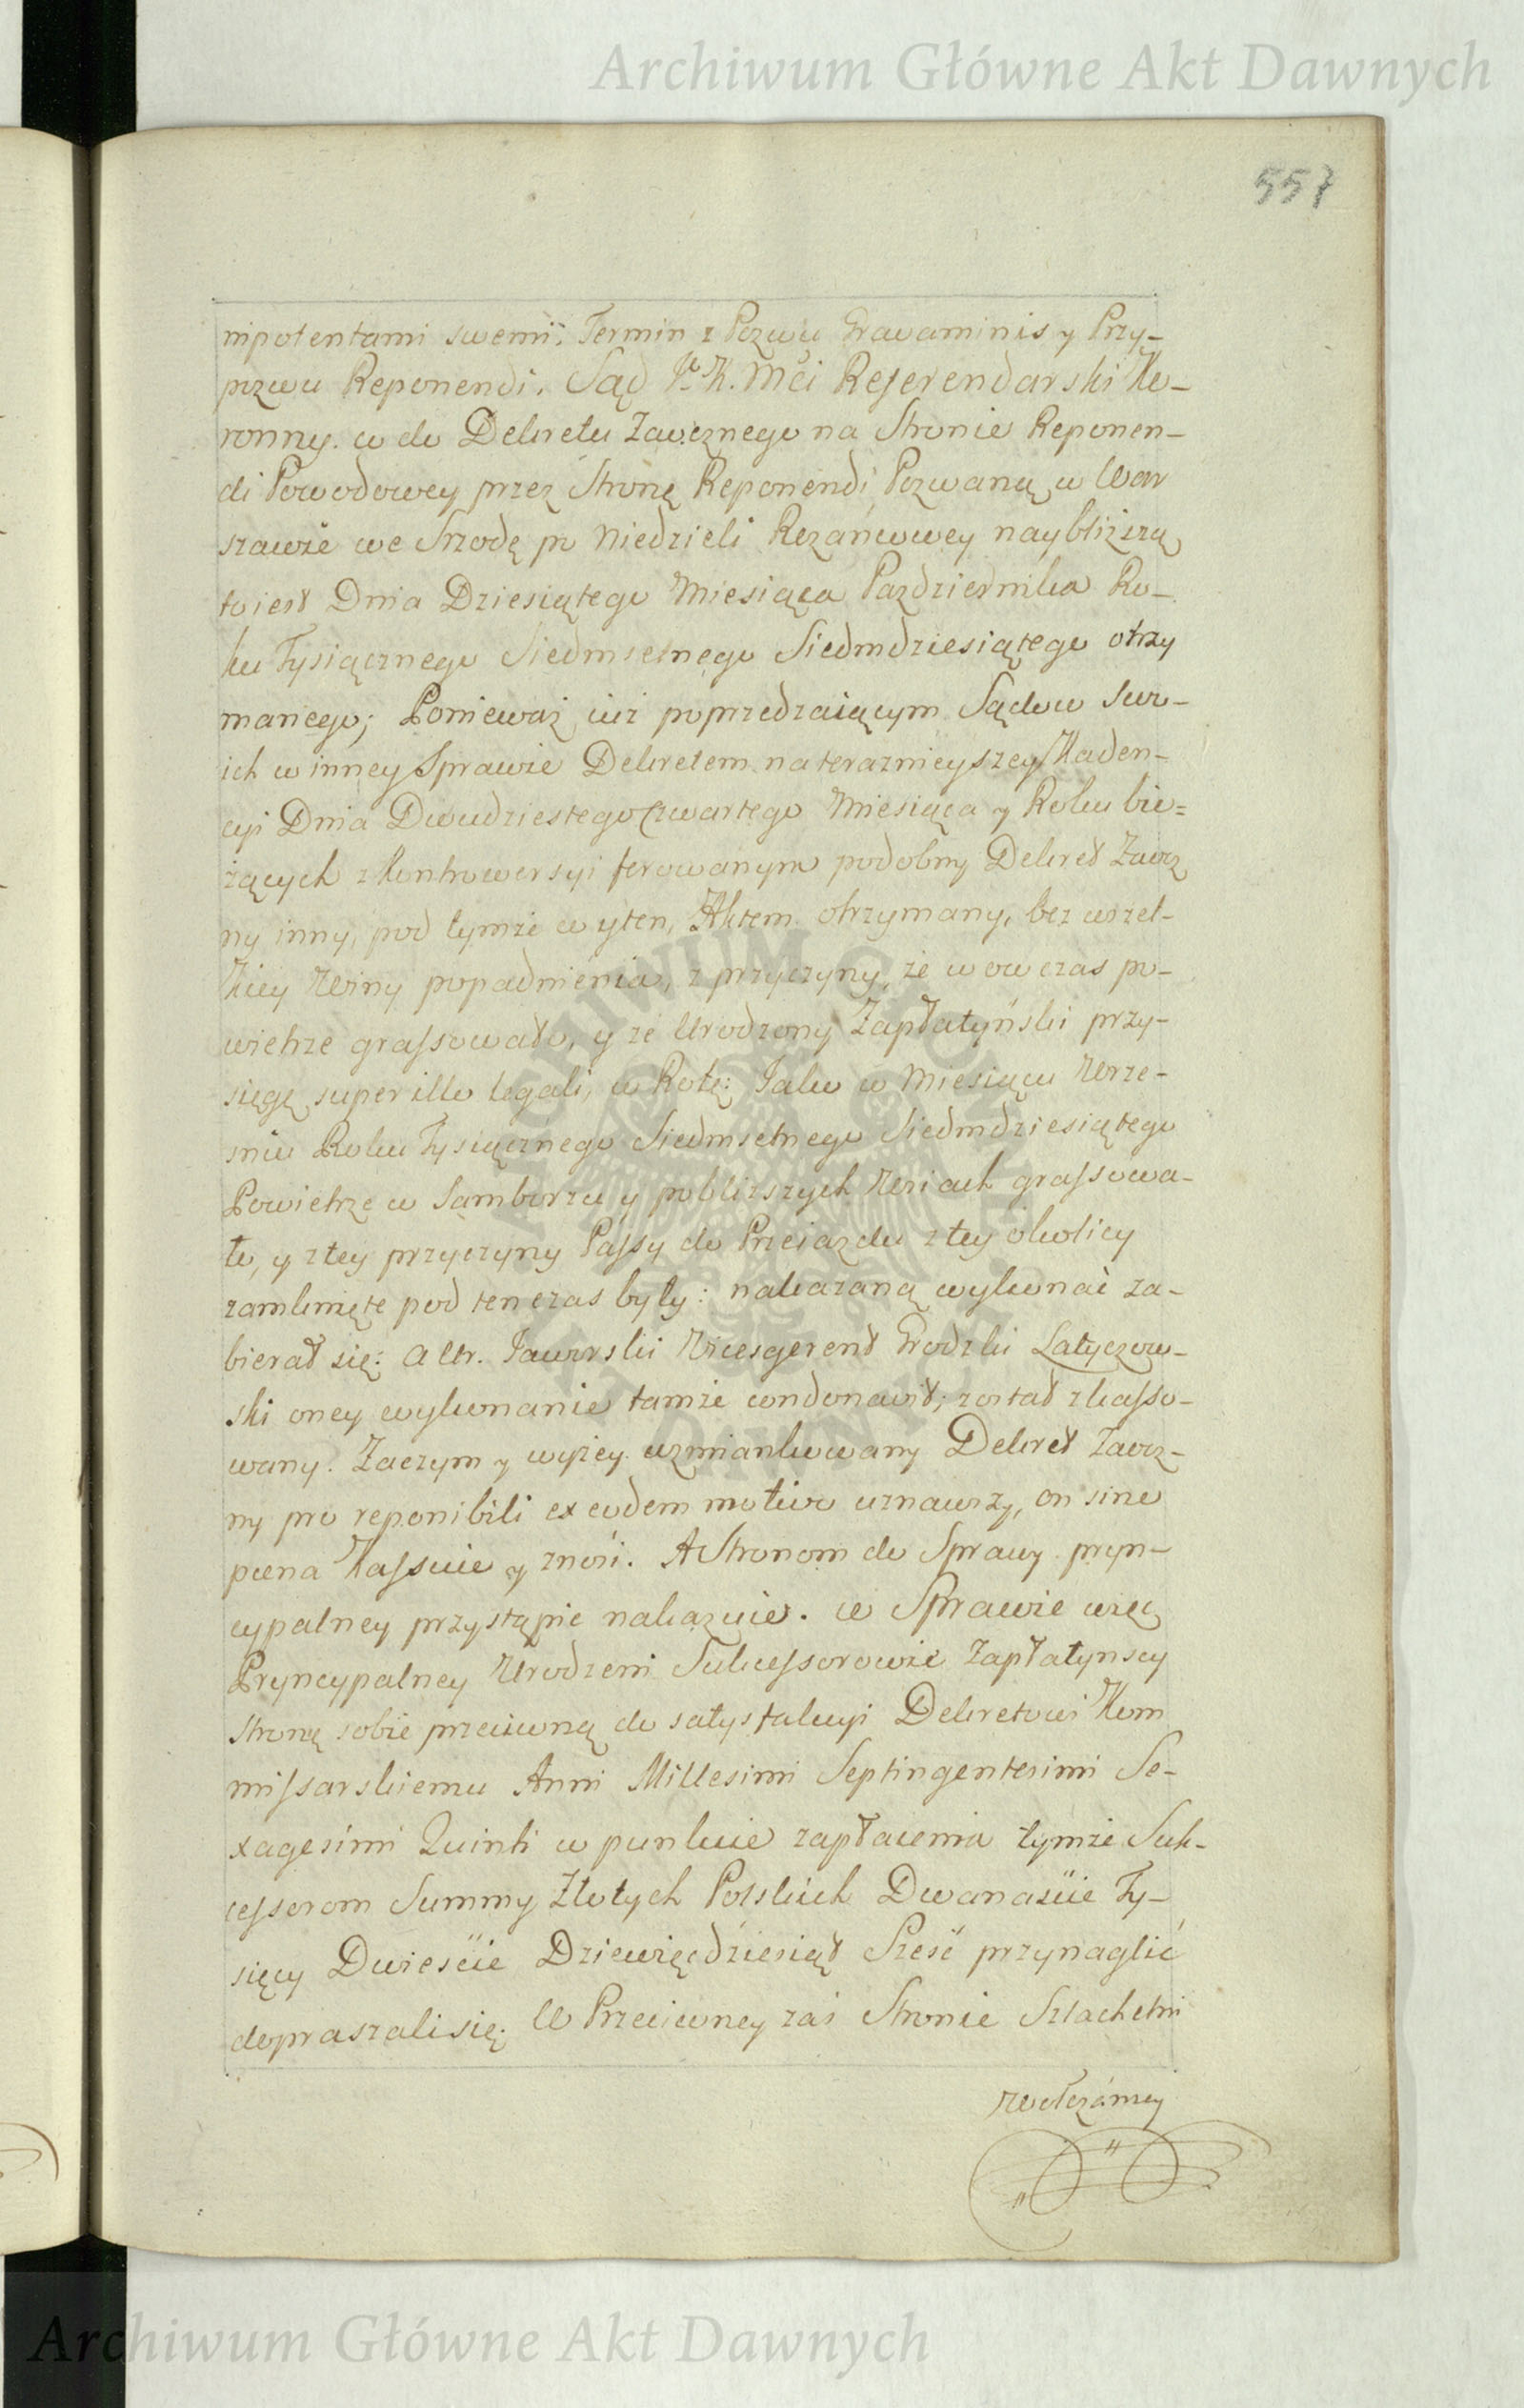 Archiwum Główne Akt Dawnych
557
nipotentami swemi. Termin z Pozwu Gravaminis y Przy-
pozwu Reponendi. Sąd Je. K. Mći Referendarski Ko-
ronny. co do Dekretu Zaocznego na Stronie Reponen-
di Powodowey przez Stronę Reponendi Pozwaną w War
szawie we Srzodę po Niedzieli Rożańcowey naybliższą
to iest Dnia Dziesiątego Miesiąca Pazdziernika Ro-
ku Tysiącznego Siedmsetnego Siedmdziesiątego otrzy
manego; Ponieważ iuż poprzedzaiącym Sądow swo-
ich w inney Sprawie Dekretem na terazniejszey Kaden-
cyi Dnia Dwudziestego Czwartego Miesiąca y Roku bie-
żących z Kontrowersyi ferowanym podobny Dekret Zaocz
ny inny, pod tymże co y ten, Aktem otrzymany, bez wszel-
kiey Winy popadnienia, z przyczyny, że wowczas po-
wietrze grassowało, y że Urodzony Zapłatyński przy-
sięgę super illo legali, w Rotę: Jako w Miesiącu Wrze-
sniu Roku Tysiącznego Siedmsetnego Siedmdziesiątego
Powietrze w Samborzu y pobliższych Wsiach grassowa-
ło, y z tey przyczyny Passy do Przeiazdu z tey okolicy
zamknięte pod ten czas były: nakazaną wykonać za-
bierał się: a Ur. Jaworski Vicesgerent Grodzki Latyczow-
ski oney wykonanie tamże condonawił; został zkasso-
wany. Zaczym y wyżey wzmiankowany Dekret Zaocz-
ny pro reponibili ex eodem motivo uznawszy, on sine
poena Kassuie y znosi. A Stronom do Sprawy pryn-
cypalney przystąpić nakazuie. w Sprawie więc
Pryncypalney Urodzeni Sukcessorowie Zapłatynscy
stronę sobie przeciwną do satysfakcyi Dekretowi Kom
missarskiemu Anni Millesimi Septingentesimi Se-
xagesimi Quinti w punkcie zapłacenia tymże Suk-
cessorom Summy Złotych Polskich Dwanaście Ty-
sięcy Dwieście Dziewięćdziesiąt Sześć przynaglić
dopraszali się. W Przeciwney zaś Stronie Szlachetni
Archiwum Główne Akt Dawnych